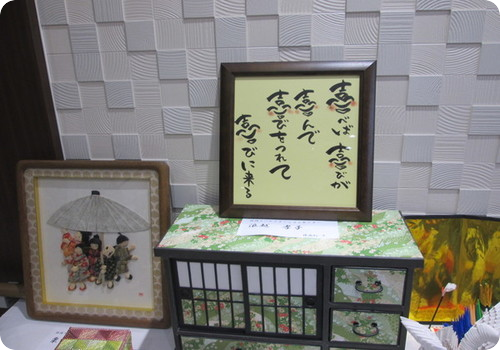 喜べば 喜びが
喜んで
喜びをつれて
喜びに来る